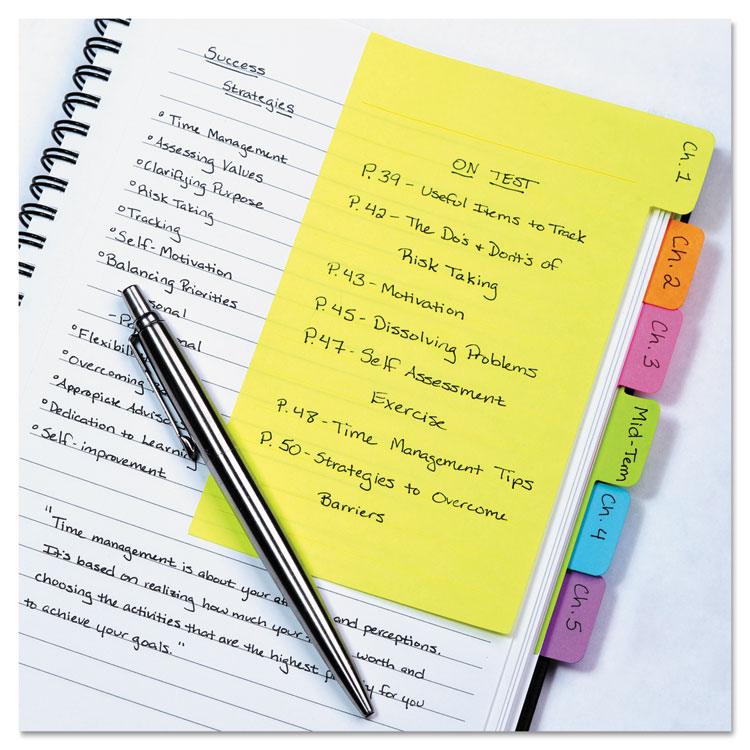 Success
Strategies
° Time Management
° Assessing Values
° Clarifying Purpose
° Risk Taking
° Tracking
° Self-Motivation
° Balancing Priorities
° Overcoming
° Appropiate
° Dedication to Learning
° Self-improvement
"Time management is about your and perceptions.
It's based on realizing how much your worth and
choosing the activities that are the highest for you
to achieve your goals."
ON TEST
P.39 - Useful Items to Track
P.42 - The Do's + Dont's of
Risk Taking
P.43 - Motivation
P.45 - Dissolving Problems
P.47 - Self Assessment
Exercise
P.48 - Time Management Tips
P.50 - Strategies to Overcome
Barriers
Ch. 1
Ch. 2
Ch. 3
Mid-Term
Ch. 4
Ch. 5